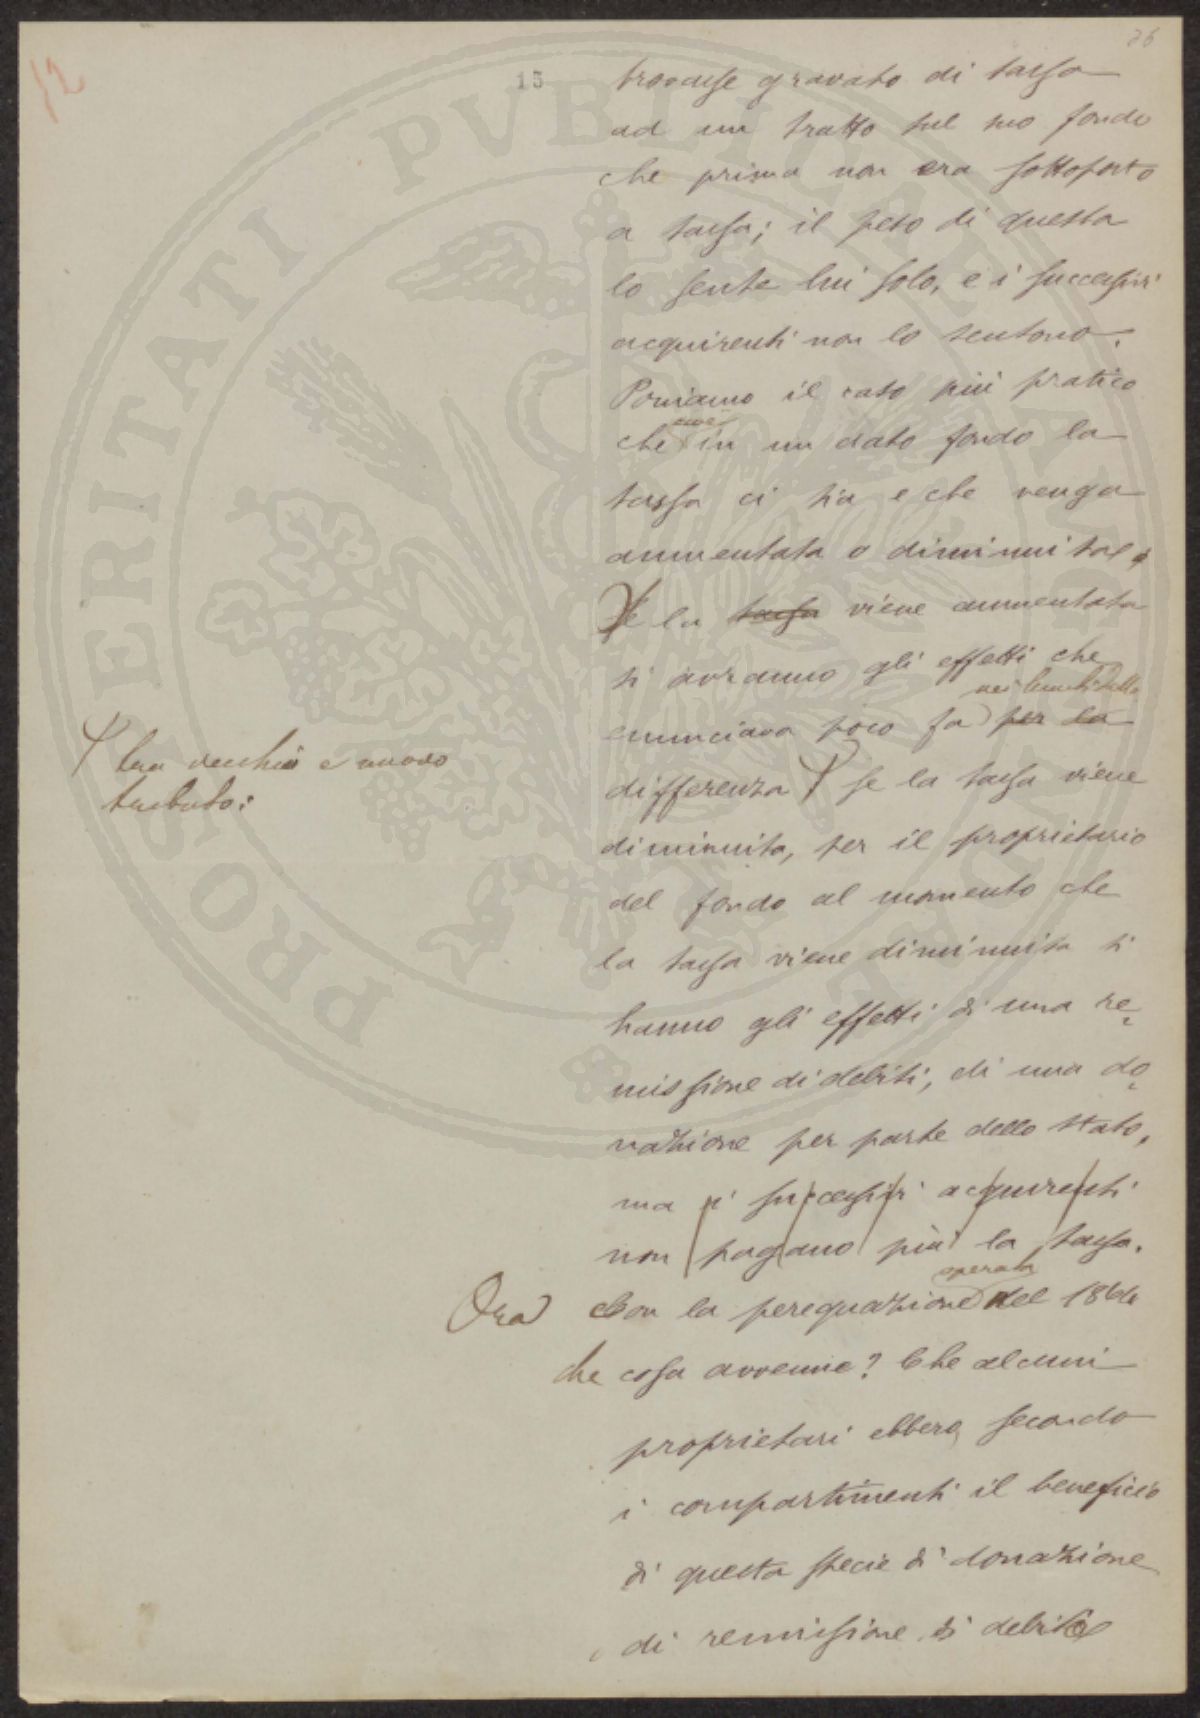 12
36
15
trovasse gravato di tassa
ad un tratto sul suo fondo
che prima non era sottoposto
a tassa; il peso di questa
lo sente lui solo, e i successivi
acquirenti non lo sentono.
Poniamo il caso più pratico
che in un dato fondo la
tassa ci sia e che venga
aumentata o diminuita.
Se la tassa viene aumentata
si avranno gli effetti che
nei limiti della
enunciava poco fa per la
differenza se la tassa viene
tra vecchio e nuovo
tributo:
diminuita, per il proprietario
del fondo al momento che
la tassa viene diminuita si
hanno gli effetti di una re-
missione di debiti, di una do-
nazione per parte dello Stato,
ma i successivi acquirenti
non pagano più la tassa.
operata
Ora con la perequazione del 1864
che cosa avvenne? Che alcuni
proprietari ebbero secondo
i compartimenti il beneficio
di questa specie di donazione
di remissione di debiti
PROSPERITATI PVBLICAE